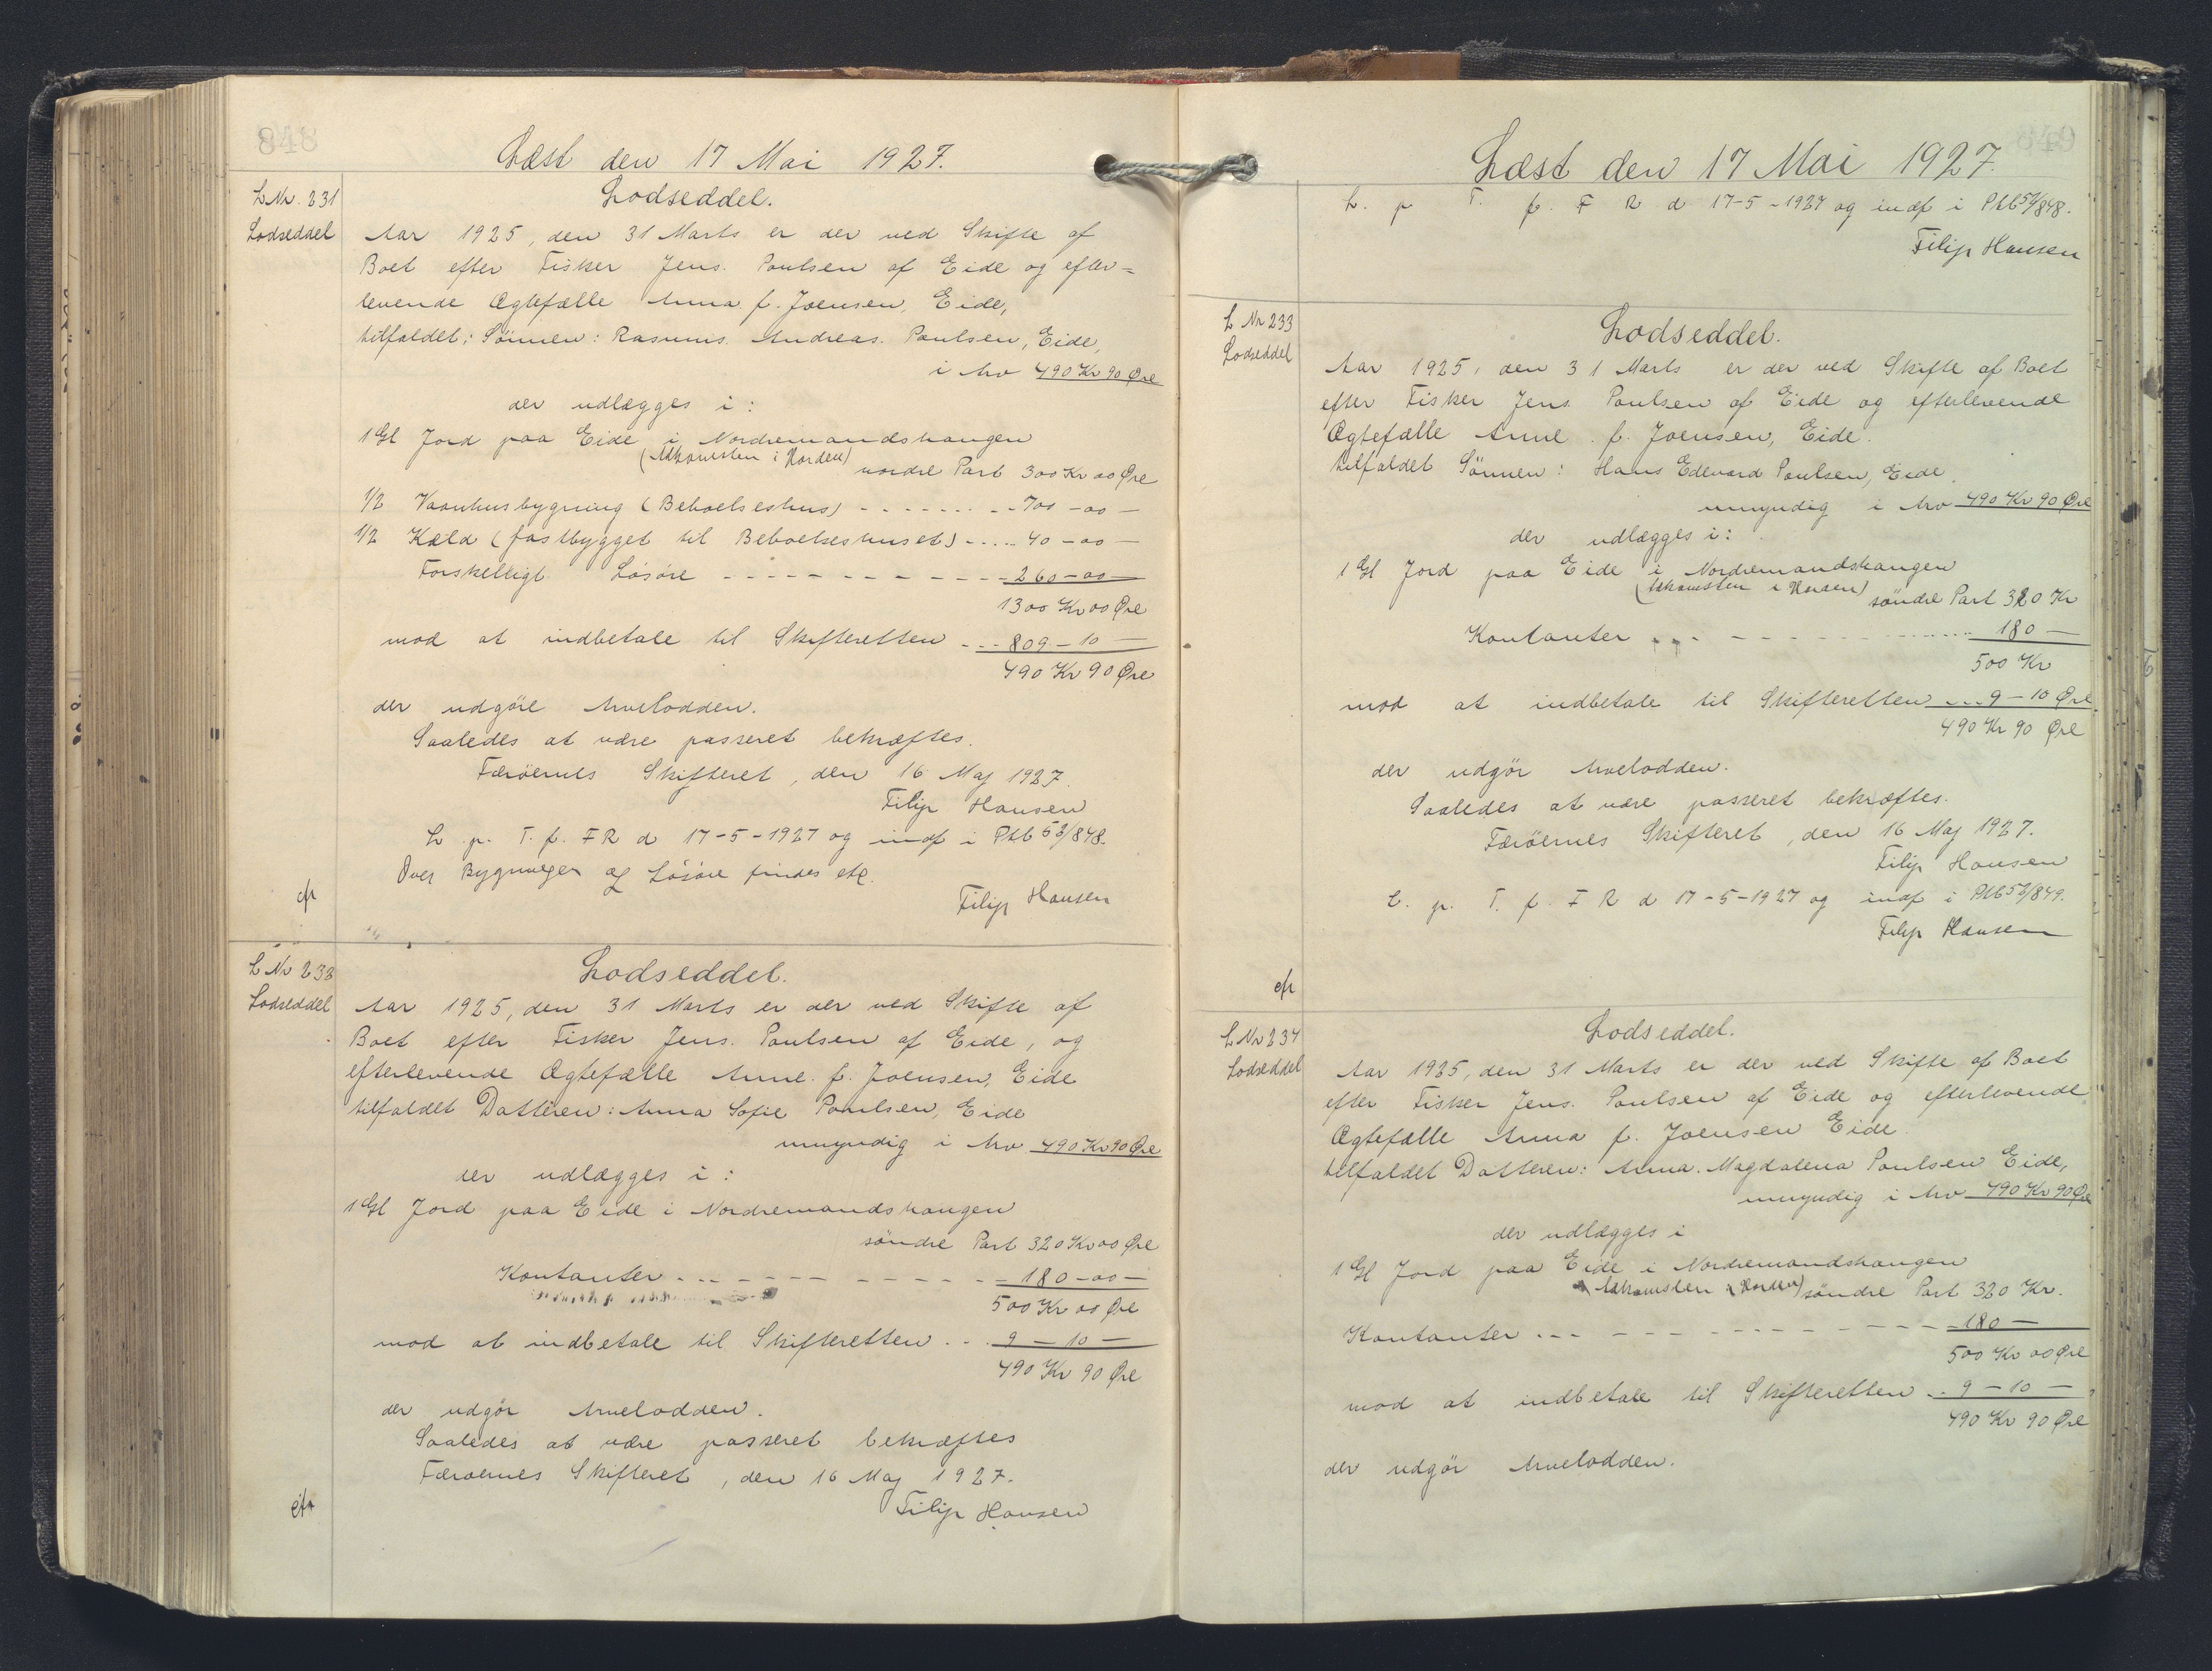 Læst den 17 Mai 1927.
L Nr. 231
Lodseddel
Lodseddel.
Aar 1925, den 31 Marts er der ved Skifte af
Boet efter Fisker Jens Poulsen af Eide og efter=
levende Ægtefælle Anna f. Joensen, Eide,
tilfaldet: Sønnen: Rasmus Andreas Poulsen, Eide,
i Arv 490 Kr 90 Øre
der udlægges i:
1 Gl Jord paa Eide i Nordremandshaugen
(Adkomsten i Orden) nordre Part 300 Kr 00 Øre
1/2 Vaanhusbygning (Beboelseshus) - - - - - 700 - 00 -
1/2 Kæld (fastbygget til Beboelseshuset) - - - - 40 - 00 -
Forskelligt Løsøre - - - - - - - - - 260 - 00 -
1300 Kr 00 Øre
mod at indbetale til Skifteretten - - - 809 - 10 -
490 Kr 90 Øre
der udgøre Arvelodden.
Saaledes at være passeret bekræftes.
Færøernes Skifteret, den 16 Maj 1927.
Filip Hansen
L. p. T. f. F R d 17-5-1927 og indf i Ptb 52/848.
Over Bygninger og Løsøre findes ete.
Filip Hansen
L Nr 232
Lodseddel
Lodseddel.
Aar 1925, den 31 Marts er der ved Skifte af
Boet efter Fisker Jens Poulsen af Eide, og
efterlevende Ægtefælle Anne f. Joensen, Eide
tilfaldet Datteren: Anna Sofie Poulsen, Eide
umyndig i Arv 490 Kr 90 Øre
der udlægges i:
1 Gl Jord paa Eide i Nordremandshaugen
søndre Part 320 Kr 00 Øre
Kontanter - - - - - - - - - 180 - 00 -
500 Kr 00 Øre
mod at indbetale til Skifteretten - - 9 - 10 -
490 Kr 90 Øre
der udgør Arvelodden.
Saaledes at være passeret bekræftes
Færøernes Skifteret, den 16 Maj 1927.
Filip Hansen
Læst den 17 Mai 1927.
L. p T. f. F R d 17-5-1927 og indf i Ptb 52/848.
Filip Hansen
L Nr 233
Lodseddel
Lodseddel.
Aar 1925, den 31 Marts er der ved Skifte af Boet
efter Fisker Jens Poulsen af Eide og efterlevende
Ægtefælle Anne f. Joensen, Eide.
tilfaldet Sønnen: Hans Edevard Poulsen, Eide,
umyndig i Arv 490 Kr 90 Øre
der udlægges i:
1 Gl Jord paa Eide i Nordremandshaugen
(Adkomsten i Orden) søndre Part 320 Kr
Kontanter - - - - - - - - - 180 -
500 Kr
mod at indbetale til Skifteretten - - - 9 - 10 Øre
490 Kr 90 Øre
der udgør Arvelodden.
Saaledes at være passeret bekræftes.
Færöernes Skifteret, den 16 Maj 1927.
Filip Hansen
L. p. T. f. F R d 17-5-1927 og indf i Ptb 52/849.
Filip Hansen
L Nr 234
Lodseddel
Lodseddel.
Aar 1925, den 31 Marts er der ved Skifte af Boet
efter Fisker Jens Poulsen af Eide og efterlevende
Ægtefælle Anna f. Joensen Eide
tilfaldet Datteren: Anna Magdalena Poulsen Eide,
umyndig i Arv 490 Kr 90 Øre
der udlægges i
1 Gl Jord paa Eide i Nordremandshaugen
(Adkomsten i Orden) søndre Part 320 Kr.
Kontanter - - - - - - - - - 180 -
500 Kr 00 Øre
mod at indbetale til Skifteretten - - 9 - 10 -
490 Kr 90 Øre
der udgør Arvelodden.